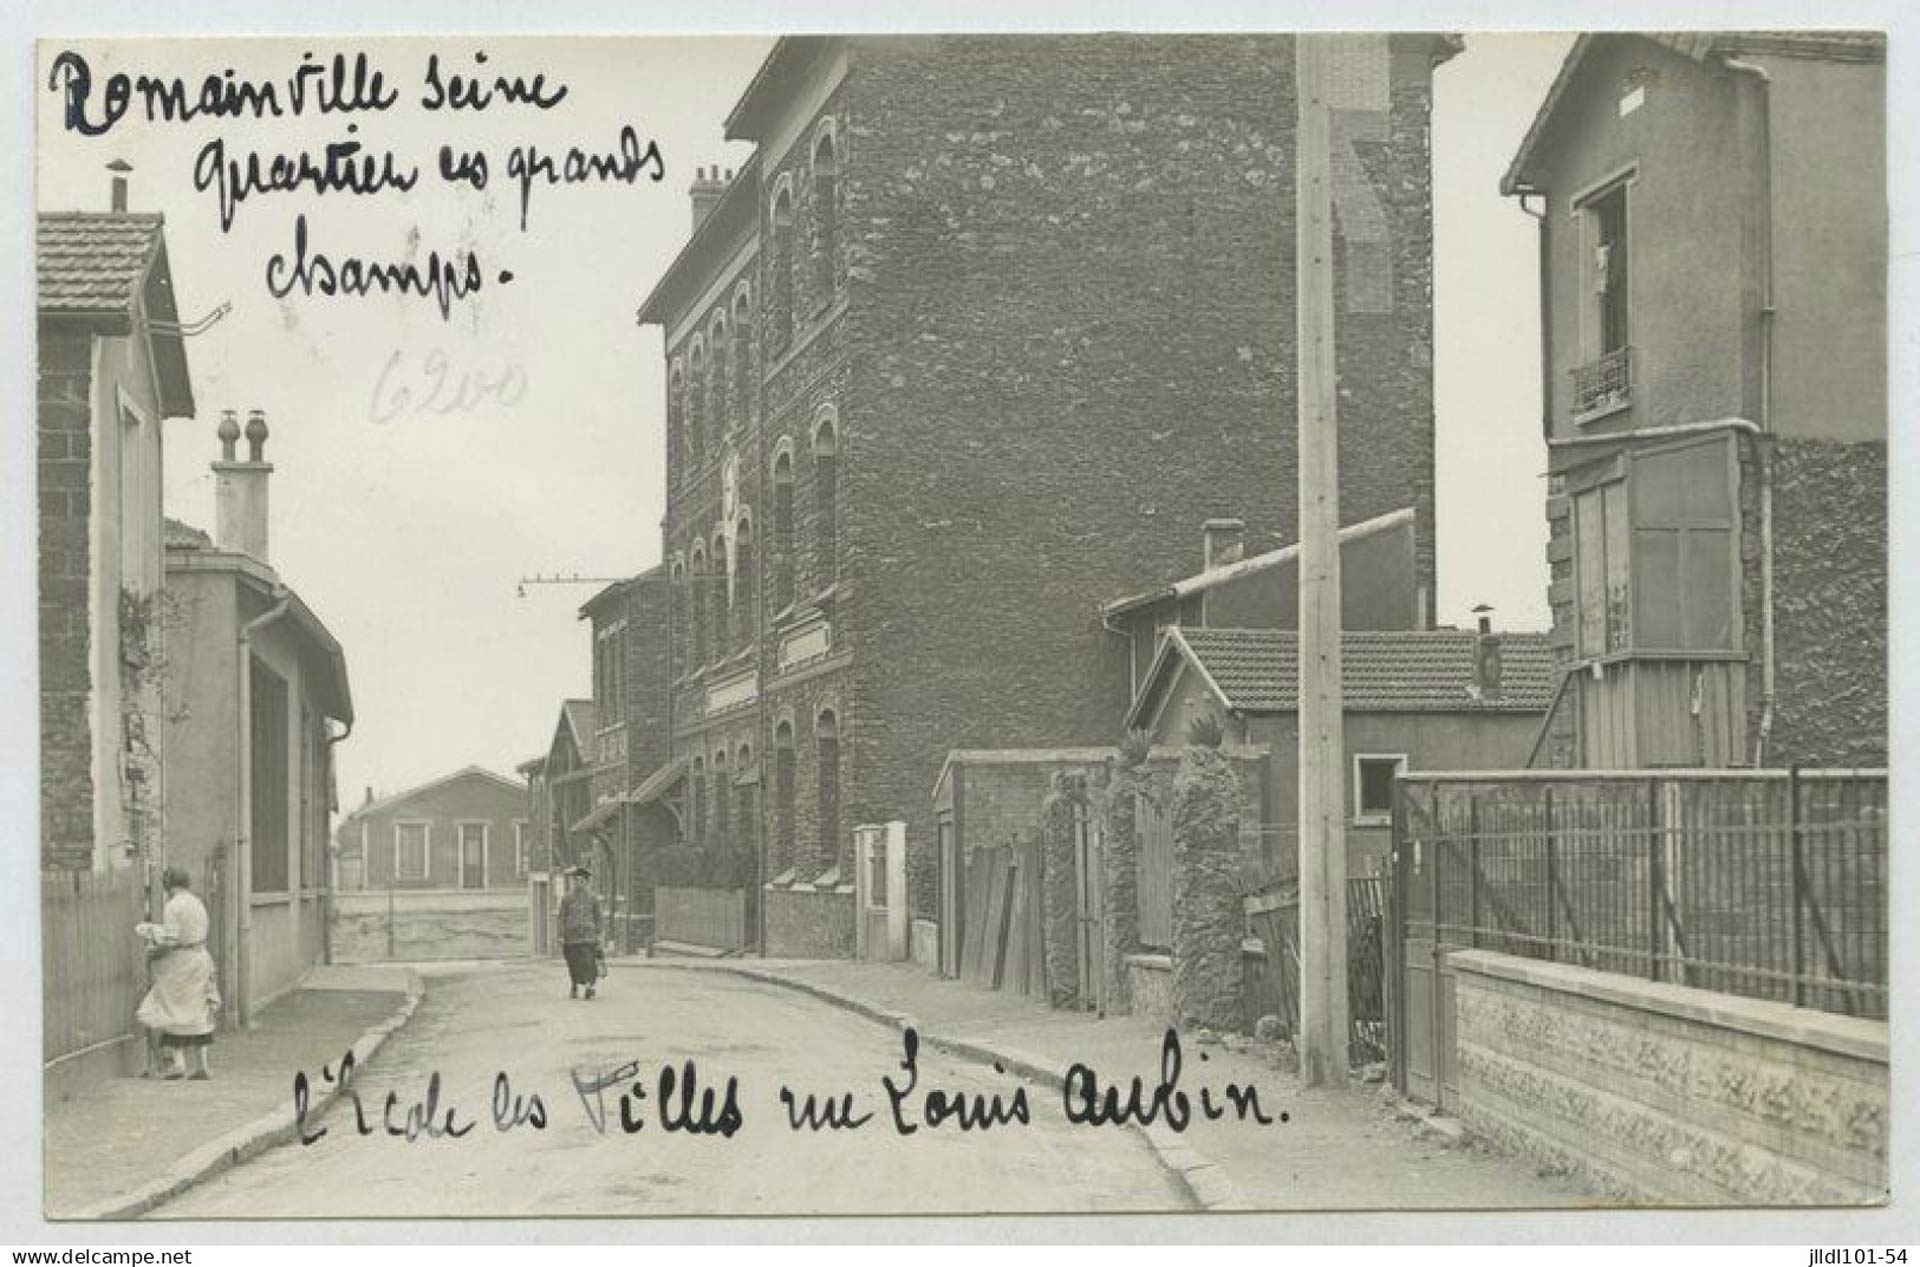 Romainville Seine
Quartier les grands
champs.
6200
l'Ecole les Filles rue Louis Aubin.
https://www.delcampe.net
jlldl101-54